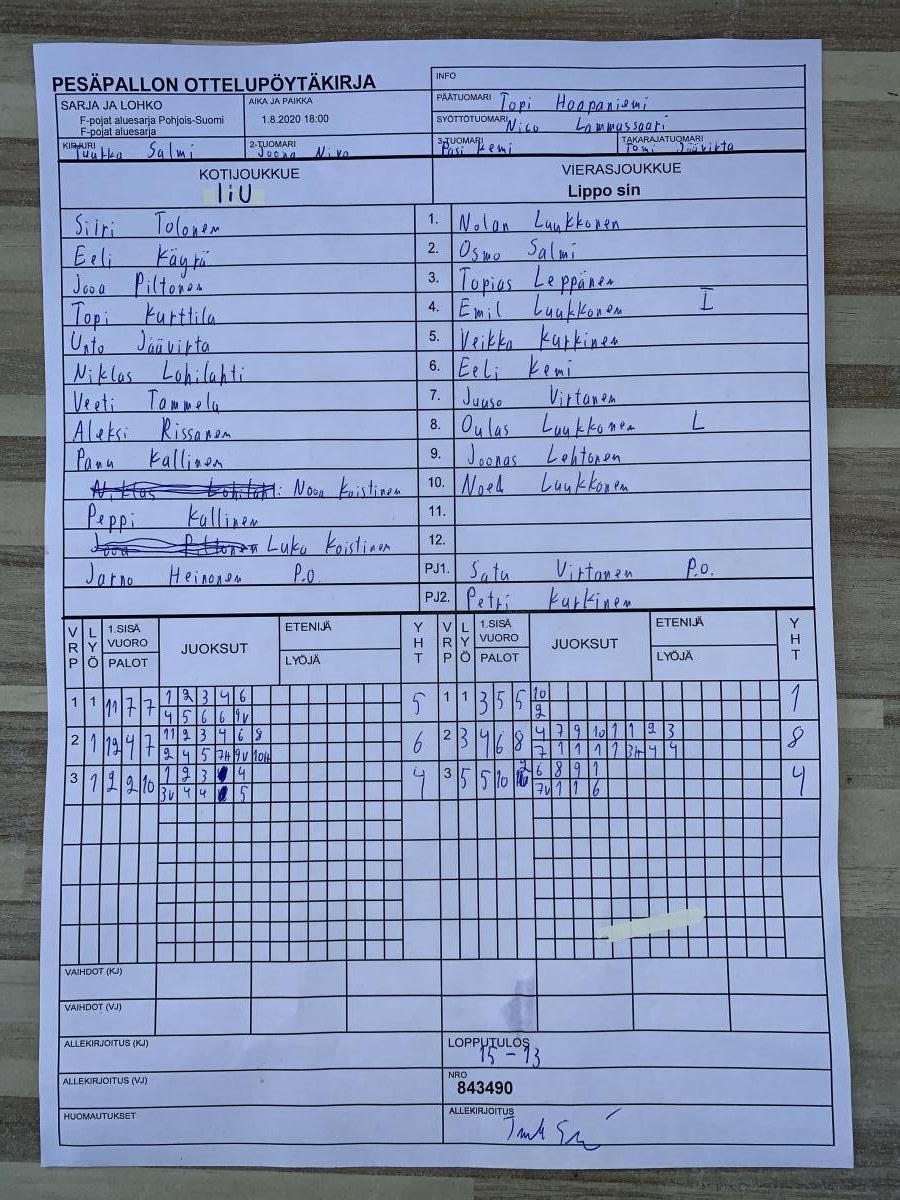 PESÄPALLON OTTELUPÖYTÄKIRJA
INFO
SARJA JA LOHKO
F-pojat aluesarja Pohjois-Suomi
F-pojat aluesarja
AIKA JA PAIKKA
1.8.2020 18:00
PÄÄTUOMARI Topi Haapaniemi
SYÖTTÖTUOMARI Nico Lammassaari
KIRJURI Tuukka Salmi
2-TUOMARI Joona Niva
3-TUOMARI Pasi Kemi
TAKARAJATUOMARI Tomi Jäävirta
KOTIJOUKKUE
IiU
VIERASJOUKKUE
Lippo sin
Siiri Tolonen 1. Nolan Luukkonen
Eeli Käyrä 2. Osmo Salmi
Jooa Piltonen 3. Topias Leppänen
Topi Kurttila 4. Emil Luukkonen I
Unto Jäävirta 5. Veikka Kurkinen
Niklas Lohilahti 6. Eeli Kemi
Veeti Tammela 7. Juuso Virtanen
Aleksi Rissanen 8. Oulas Luukkonen L
Panu Kallinen 9. Joonas Lehtonen
Niklas Lohilahti Nooa Koistinen 10. Noel Luukkonen
Peppi Kallinen 11.
Jooa Piltonen Luka Koistinen 12.
Jarno Heinonen P.O. PJ1. Satu Virtanen P.O.
PJ2. Petri Kurkinen
VRP LYÖ 1.SISÄ VUORO PALOT JUOKSUT ETENIJÄ LYÖJÄ YHT VRP LYÖ 1.SISÄ VUORO PALOT JUOKSUT ETENIJÄ LYÖJÄ YHT
1 1 11 7 7 1 2 3 4 6 5 1 1 3 5 5 10 1
4 5 6 6 9V 2
2 1 12 4 7 11 2 3 4 6 8 6 2 3 4 6 8 4 7 9 10 1 1 2 3 8
2 4 5 7H 9V 10H 7 1 1 1 1 3H 4 4
3 1 2 2 10 1 2 3 4 4 3 5 5 10 2 6 8 9 1 4
3V 4 4 5 7V 1 1 6
VAIHDOT (KJ)
VAIHDOT (VJ)
ALLEKIRJOITUS (KJ)
LOPPUTULOS
15 - 13
ALLEKIRJOITUS (VJ)
NRO
843490
HUOMAUTUKSET
ALLEKIRJOITUS